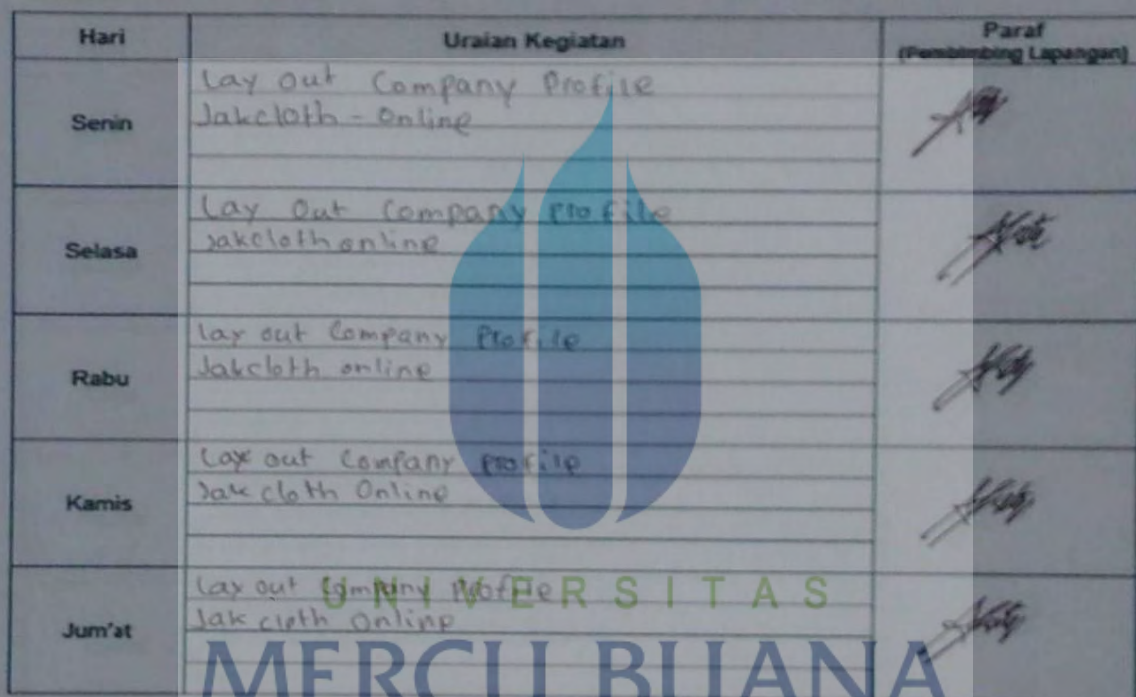 Hari Uraian Kegiatan Paraf
(Pembimbing Lapangan)
Senin
Lay out Company Profile
Jakcloth - Online
Selasa
Lay Out Company Profile
Jakcloth online
Rabu
Lay out Company Profile
Jakcloth online
Kamis
Lay out Company Profile
Jak cloth Online
Jum'at
Lay out Company Profile
Jak cloth Online
UNIVERSITAS
MERCU BUANA